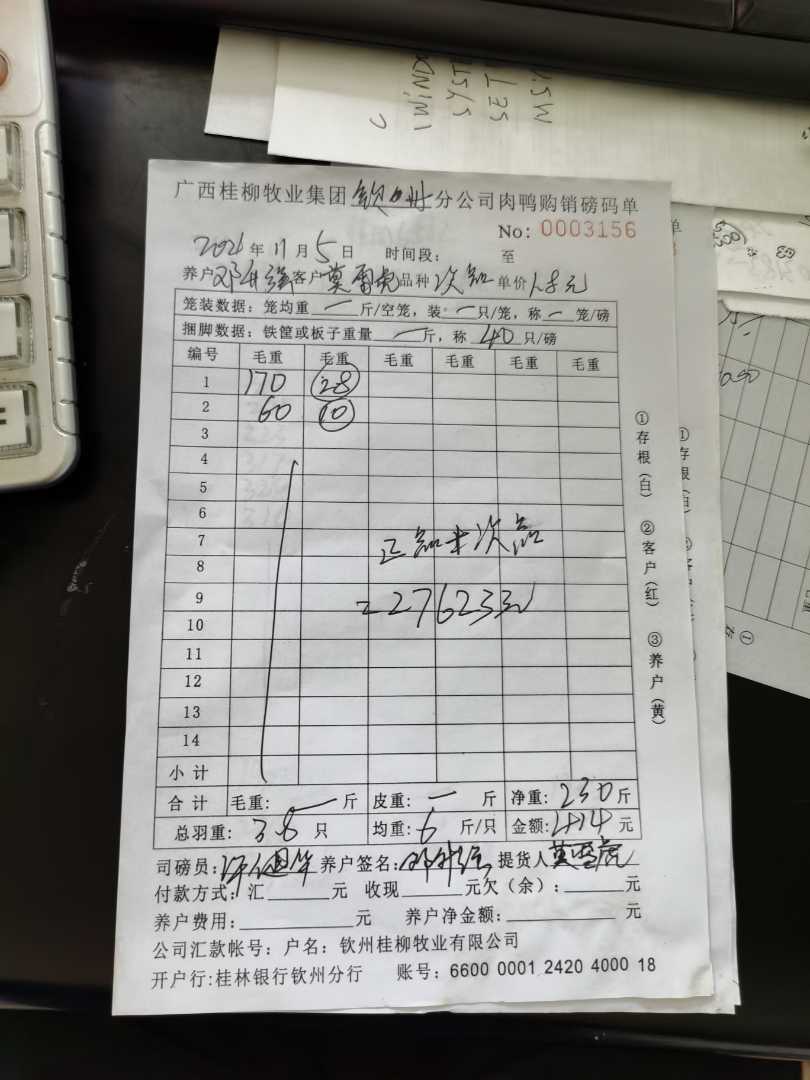 广西桂柳牧业集团 钦州 分公司肉鸭购销磅码单
No: 0003156
2021年 11月 5日 时间段: 至
养户 客户 莫雷亮 品种 次品 单价 1.8元
笼装数据: 笼均重 一 斤/空笼, 装 一 只/笼, 称 一 笼/磅
捆脚数据: 铁筐或板子重量 一 斤, 称 40 只/磅
编号 毛重 毛重 毛重 毛重 毛重 毛重
1 170 28
2 60 10
3
4
5
6
7 正品+次品
8
9 =27623元
10
11
12
13
14
小计
合计 毛重: 一 斤 皮重: 一 斤 净重: 230斤
总羽重: 38 只 均重: 6 斤/只 金额: 414 元
司磅员: 养户签名: 提货人
付款方式: 汇 元 收现 元欠（余）: 元
养户费用: 元 养户净金额: 元
公司汇款帐号: 户名: 钦州桂柳牧业有限公司
开户行:桂林银行钦州分行 账号: 6600 0001 2420 4000 18
①存根（白） ②客户（红） ③养户（黄）